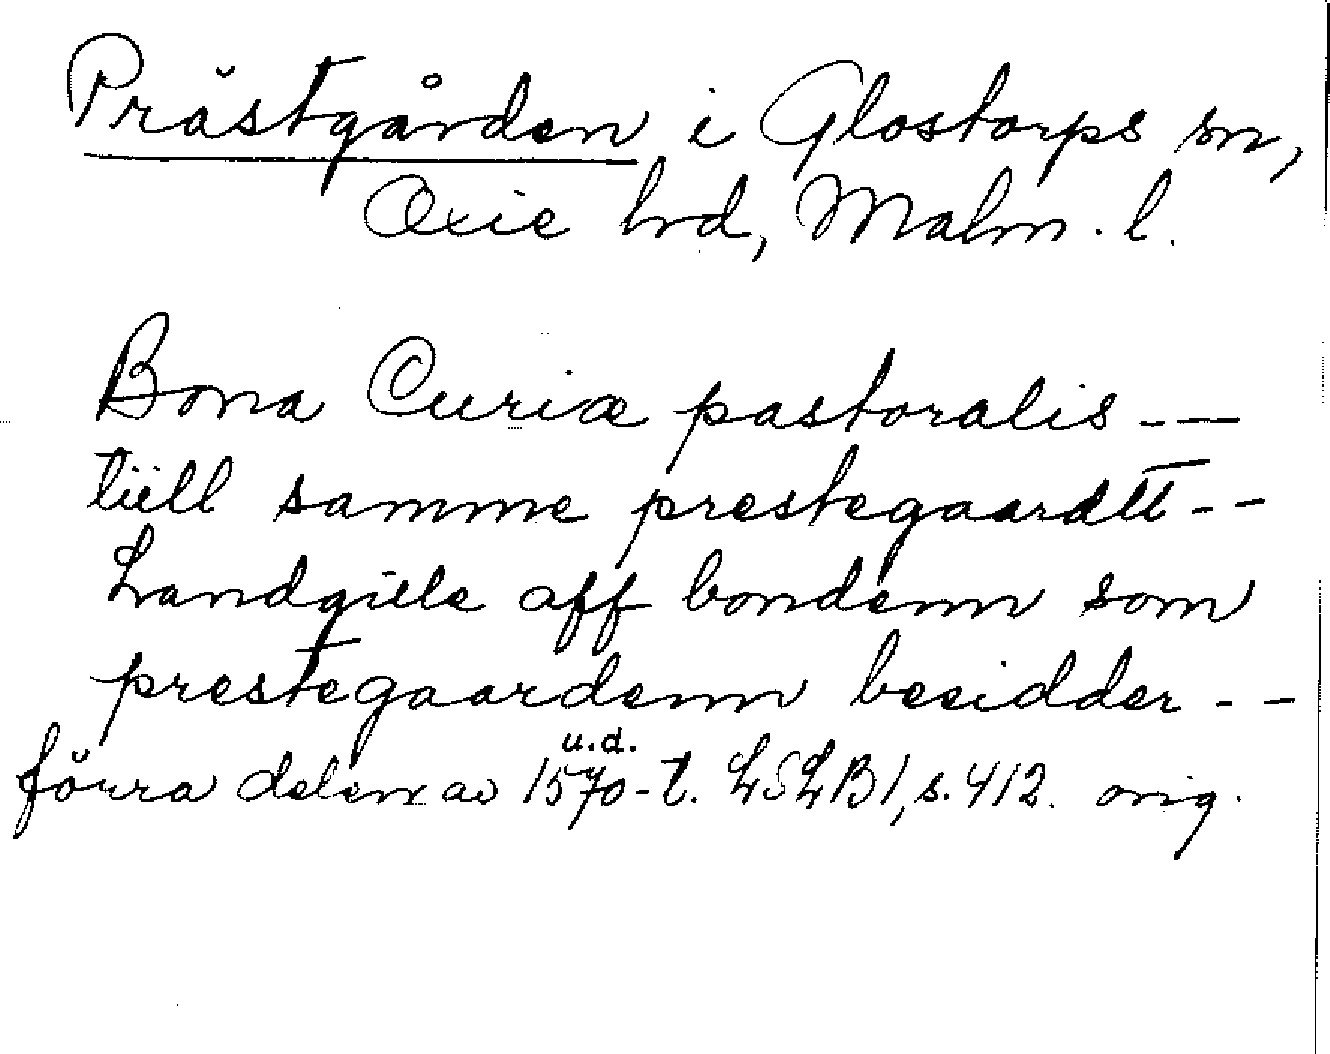 Prästgården i Glostorps sn,
Oxie hrd, Malm. l.
Bona Curiæ pastoralis - —
tiill samme prestegaardtt - -
Landgille aff bondenn som
prestegaardenn besidder - -
u.d.
förra delen av 1570-t. LSLB1, s. 412. orig.